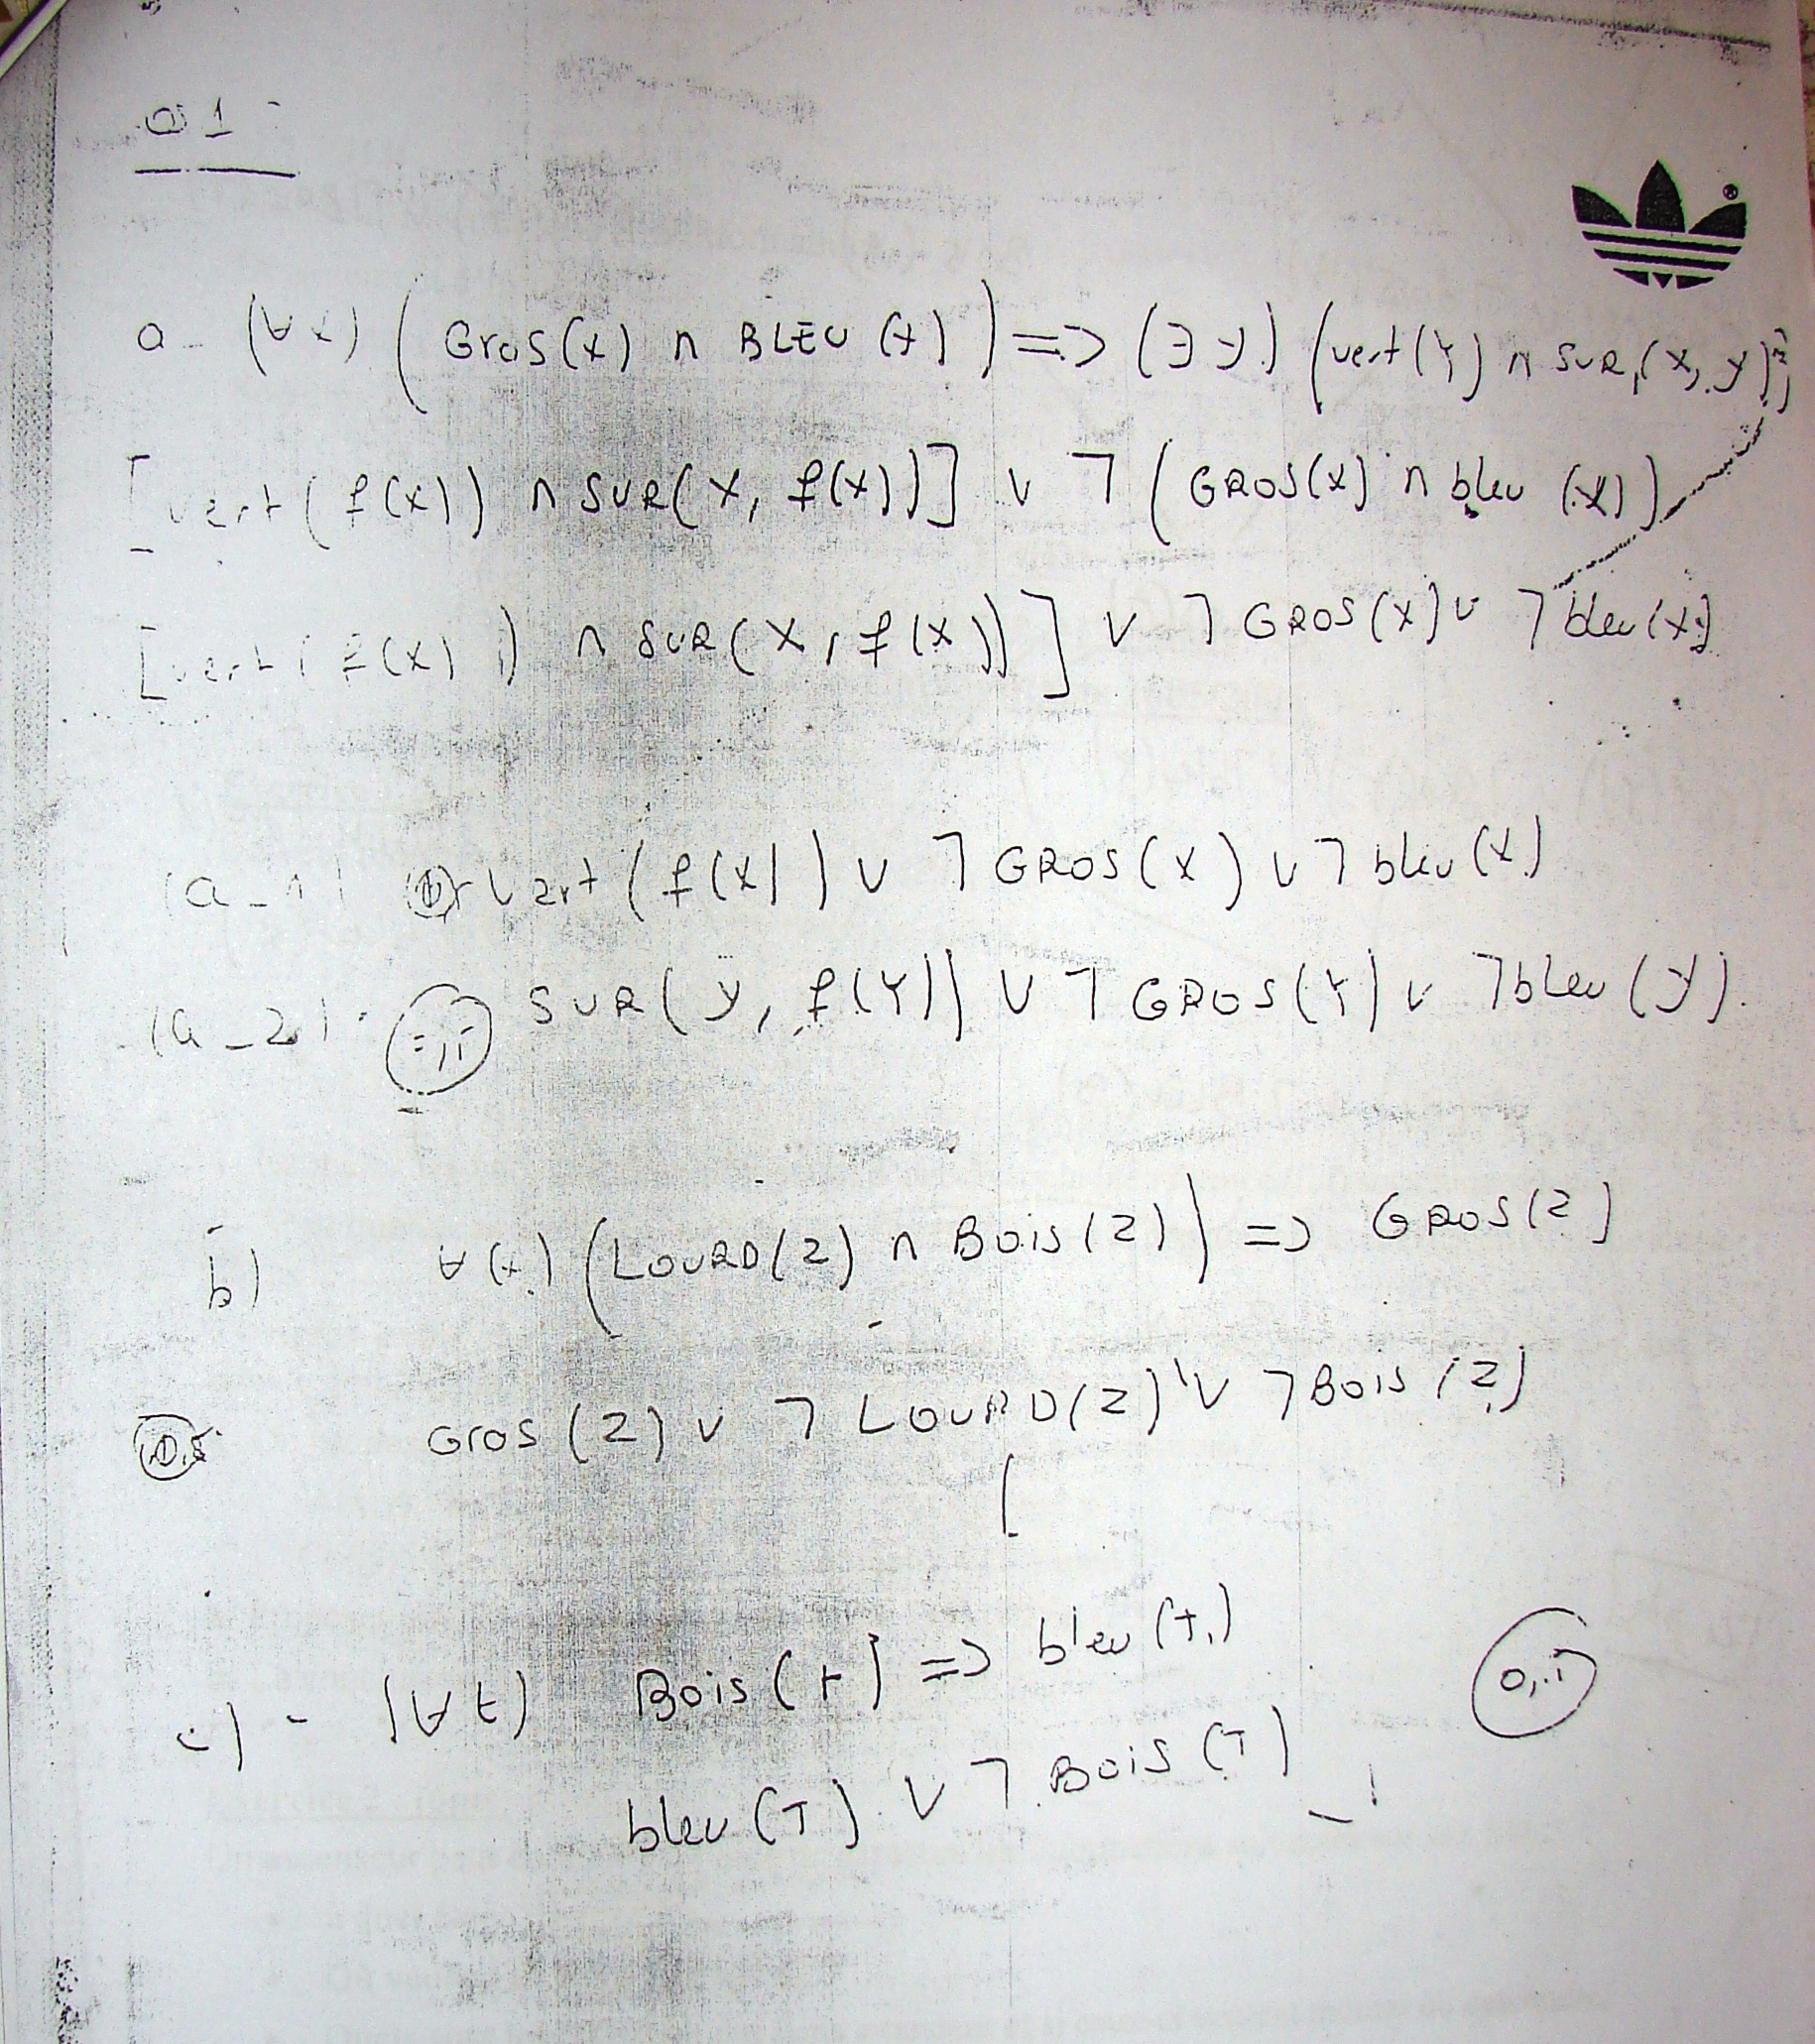 Q1
a- (∀x) ( Gros(x) ∩ BLEU (x) ) => (∃ y) (vert(Y) ∩ SUR (x, y))
[vert( f(x)) ∩ SUR(x, f(x))] ∨ ⌉ ( GROS(x) ∩ bleu (x))
[vert( f(x) ) ∩ SUR( X, f(x)) ] ∨ ⌉ GROS(x) ∨ ⌉ bleu(x)
(a_1) vert (f(x)) ∨ ⌉ GROS(x) ∨ ⌉ bleu (x)
(a_2) SUR( y, f(Y)) ∨ ⌉ GROS(Y) ∨ ⌉ bleu (y).
b) ∀(x) (LOURD(Z) ∩ Bois(Z)) => GROS(Z)
0,5 Gros (Z) ∨ ⌉ LOURD(Z) ∨ ⌉ Bois (Z)
c) - (∀ t) Bois (t) => bleu (t)
bleu (T) ∨ ⌉ Bois (T)